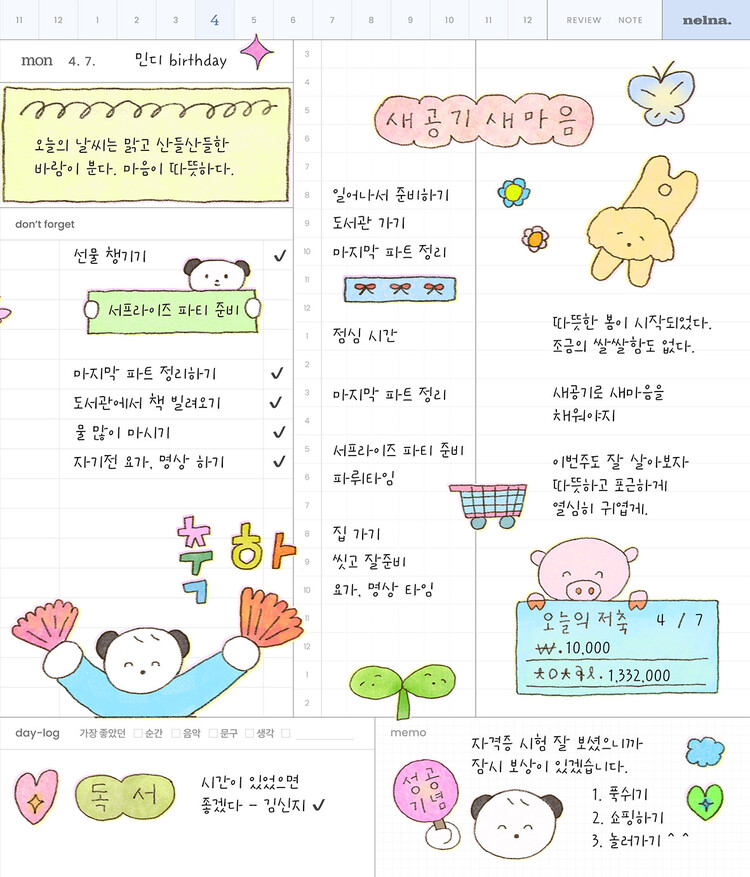 11 12 1 2 3 4 5 6 7 8 9 10 11 12 REVIEW NOTE nelna.
mon 4. 7. 민디 birthday
오늘의 날씨는 맑고 산들산들한
바람이 분다. 마음이 따뜻하다.
don't forget
선물 챙기기 ✓
서프라이즈 파티 준비
마지막 파트 정리하기 ✓
도서관에서 책 빌려오기 ✓
물 많이 마시기 ✓
자기전 요가, 명상 하기 ✓
축하
3
4
5
6
7
8 일어나서 준비하기
9 도서관 가기
10 마지막 파트 정리
11
12
1 점심 시간
2
3 마지막 파트 정리
4
5 서프라이즈 파티 준비
6 파뤼타임
7
8 집 가기
9 씻고 잘준비
10 요가, 명상 타임
11
12
1
2
새공기새마음
따뜻한 봄이 시작되었다.
조금의 쌀쌀함도 없다.
새공기로 새마음을
채워야지
이번주도 잘 살아보자
따뜻하고 포근하게
열심히 귀엽게.
오늘의 저축 4 / 7
₩.10,000
1,332,000
day-log 가장 좋았던 □ 순간 □ 음악 □ 문구 □ 생각 □
독서
시간이 있었으면
좋겠다 – 김신지 ✓
memo
자격증 시험 잘 보셨으니까
잠시 보상이 있겠습니다.
성공
기념
1. 푹쉬기
2. 쇼핑하기
3. 놀러가기 ^ ^